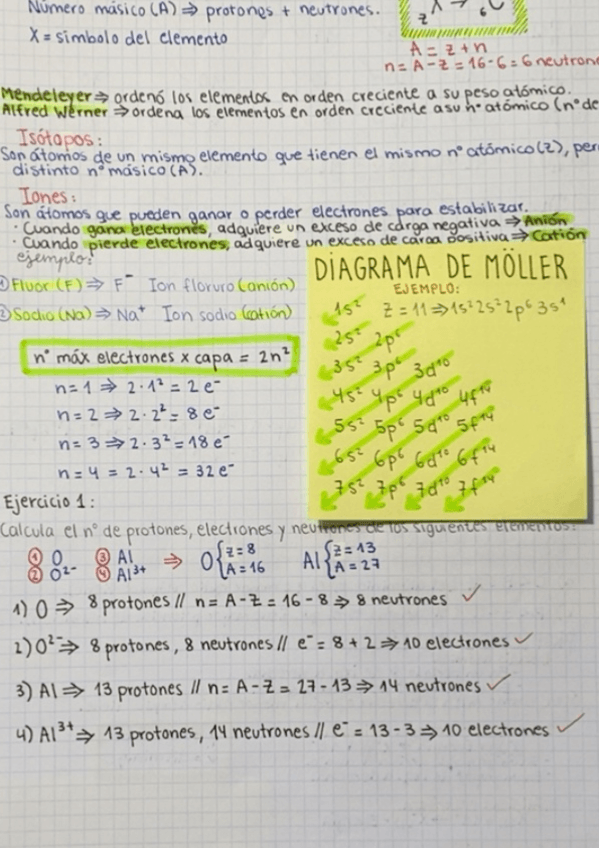 Número másico (A) ⇒ protones + neutrones.
X = símbolo del elemento
z X → 6 C
A = z + n
n = A - Z = 16 - 6 = 6 neutron
Mendeleyer ⇒ ordenó los elementos en orden creciente a su peso atómico.
Alfred Werner ⇒ ordena los elementos en orden creciente a su nº atómico (nº de
Isótopos:
Son átomos de un mismo elemento que tienen el mismo nº atómico (Z), per
distinto nº másico (A).
Iones:
Son átomos que pueden ganar o perder electrones para estabilizar.
· Cuando gana electrones, adquiere un exceso de carga negativa ⇒ Anión
· Cuando pierde electrones, adquiere un exceso de carga positiva ⇒ Catión
ejemplo:
① Fluor (F) ⇒ F⁻ Ion floruro (anión)
② Sodio (Na) ⇒ Na⁺ Ion sodio (catión)
nº máx electrones x capa = 2n²
n = 1 ⇒ 2·1² = 2 e⁻
n = 2 ⇒ 2·2² = 8 e⁻
n = 3 ⇒ 2·3² = 18 e⁻
n = 4 = 2·4² = 32 e⁻
DIAGRAMA DE MÖLLER
EJEMPLO:
1s² Z = 11 ⇒ 1s² 2s² 2p⁶ 3s¹
2s² 2p⁶
3s² 3p⁶ 3d¹⁰
4s² 4p⁶ 4d¹⁰ 4f¹⁴
5s² 5p⁶ 5d¹⁰ 5f¹⁴
6s² 6p⁶ 6d¹⁰ 6f¹⁴
7s² 7p⁶ 7d¹⁰ 7f¹⁴
Ejercicio 1:
Calcula el nº de protones, electrones y neutrones de los siguientes elementos:
① O ③ Al ⇒ O { Z = 8 Al { Z = 13
② O²⁻ ④ Al³⁺ A = 16 A = 27
1) O ⇒ 8 protones // n = A - Z = 16 - 8 ⇒ 8 neutrones ✓
2) O²⁻ ⇒ 8 protones, 8 neutrones // e⁻ = 8 + 2 ⇒ 10 electrones ✓
3) Al ⇒ 13 protones // n = A - Z = 27 - 13 ⇒ 14 neutrones ✓
4) Al³⁺ ⇒ 13 protones, 14 neutrones // e⁻ = 13 - 3 ⇒ 10 electrones ✓